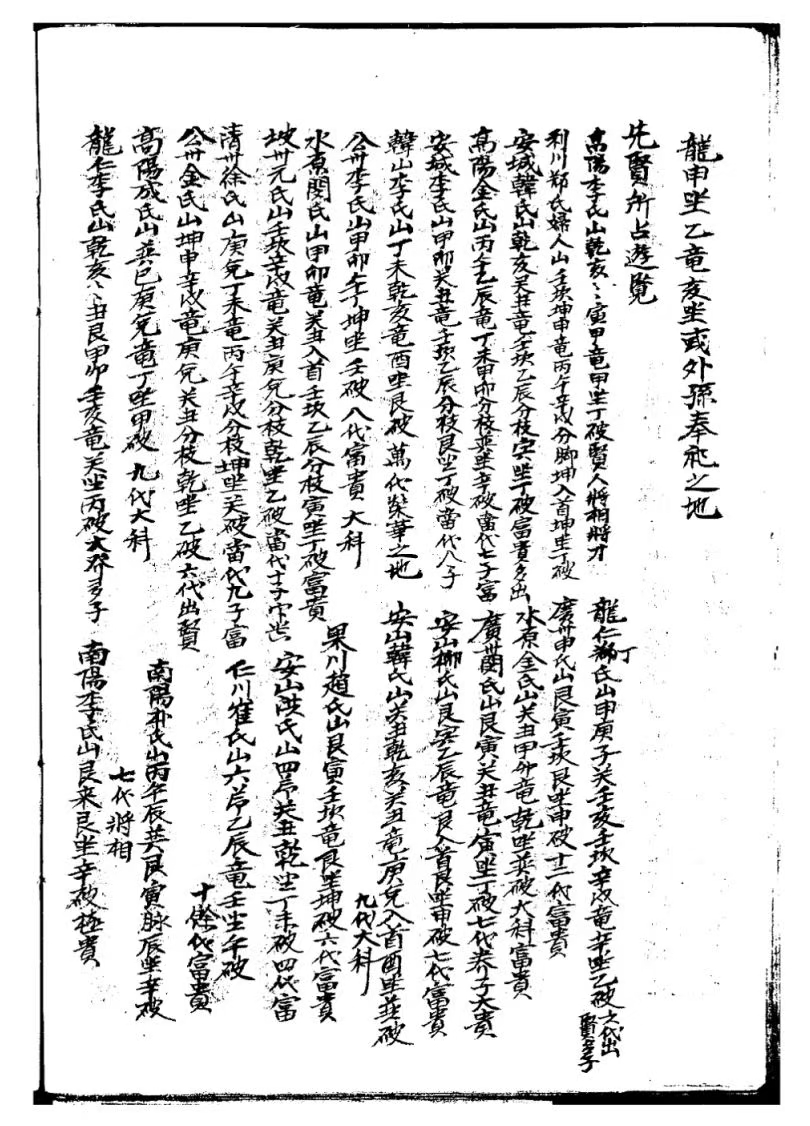 龍申坐乙竜亥坐或外孫奉祀之地
先賢所占遊覧
高陽李氏山乾亥〻寅甲竜甲坐丁破賢人將相將才
利川鄭氏婦人山壬坎坤申竜丙午辛戌分脚坤入首坤坐丁破
安城韓氏山乾亥癸丑竜壬坎乙辰分枝寅坐丁破富貴多出
高陽金氏山丙午乙辰竜丁未甲卯分枝巽坐辛破當代七子富
安城李氏山甲卯癸丑竜壬坎乙辰分枝艮坐丁破當代八子
韓山李氏山丁未乾亥竜酉坐艮破萬代榮華之地
公州李氏山甲卯午丁坤坐壬破八代富貴大科
水原閔氏山甲卯竜癸丑入首壬坎乙辰分枝寅坐丁破富貴
坡州元氏山壬坎辛戌竜癸丑庚兌分枝乾坐乙破當代十子
清州徐氏山庚兌丁未竜丙午辛戌分枝坤坐癸破當代九子富
公州金氏山坤申辛戌竜庚兌癸丑分枝乾坐乙破六代出賢
高陽成氏山巽巳庚兌竜丁坐甲破九代大科
龍仁李氏山乾亥〻丑艮甲卯壬亥竜癸坐丙破大發多子
龍仁鄭氏山甲庚子癸壬亥壬坎辛戌竜辛坐乙破六代出賢多子
丁
廣州申氏山艮寅壬坎艮坐申破十二代富貴
水原金氏山癸丑甲卯竜乾坐巽破大科富貴
廣州閔氏山艮寅癸丑竜寅坐丁破七代養子大貴
安山柳氏山艮寅乙辰竜艮入首艮坐申破七代富貴
安山韓氏山癸丑乾亥癸丑竜庚兌入首酉坐巽破
九代大科
果川趙氏山艮寅壬坎竜艮坐坤破六代富貴
安山洪氏山四節癸丑乾坐丁未破四代富
仁川崔氏山六節乙辰竜壬坐午破
十餘代富貴
南陽朴氏山丙午辰巽艮寅脉辰坐辛破
七代將相
南陽李氏山艮来艮坐辛破極貴